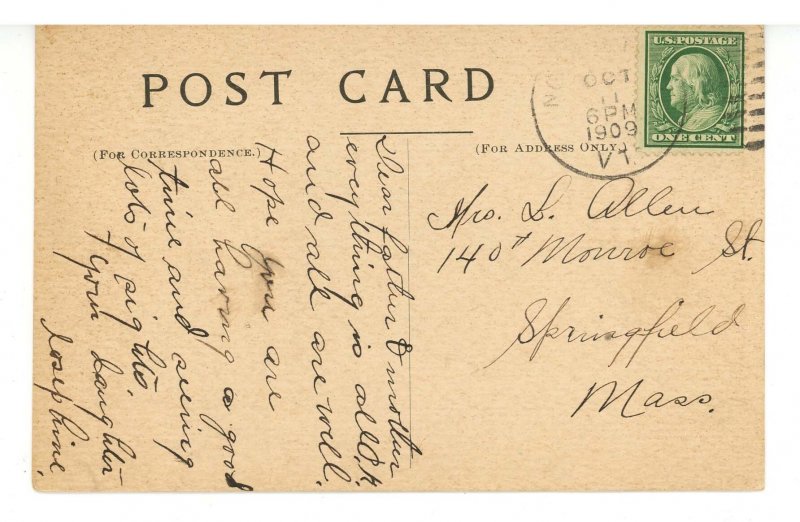 POST CARD
(FOR CORRESPONDENCE.)
(FOR ADDRESS ONLY.)
U.S.POSTAGE
ONE CENT
NO
OCT
11
6 PM
1909
VT.
Mrs. L. Allen
140 Monroe St.
Springfield
Mass.
Dear father & mother
everything is all O.K.
and all are well.
Hope you are
all having a good
time and seeing
lots of sights
Your Daughter
Josephine.